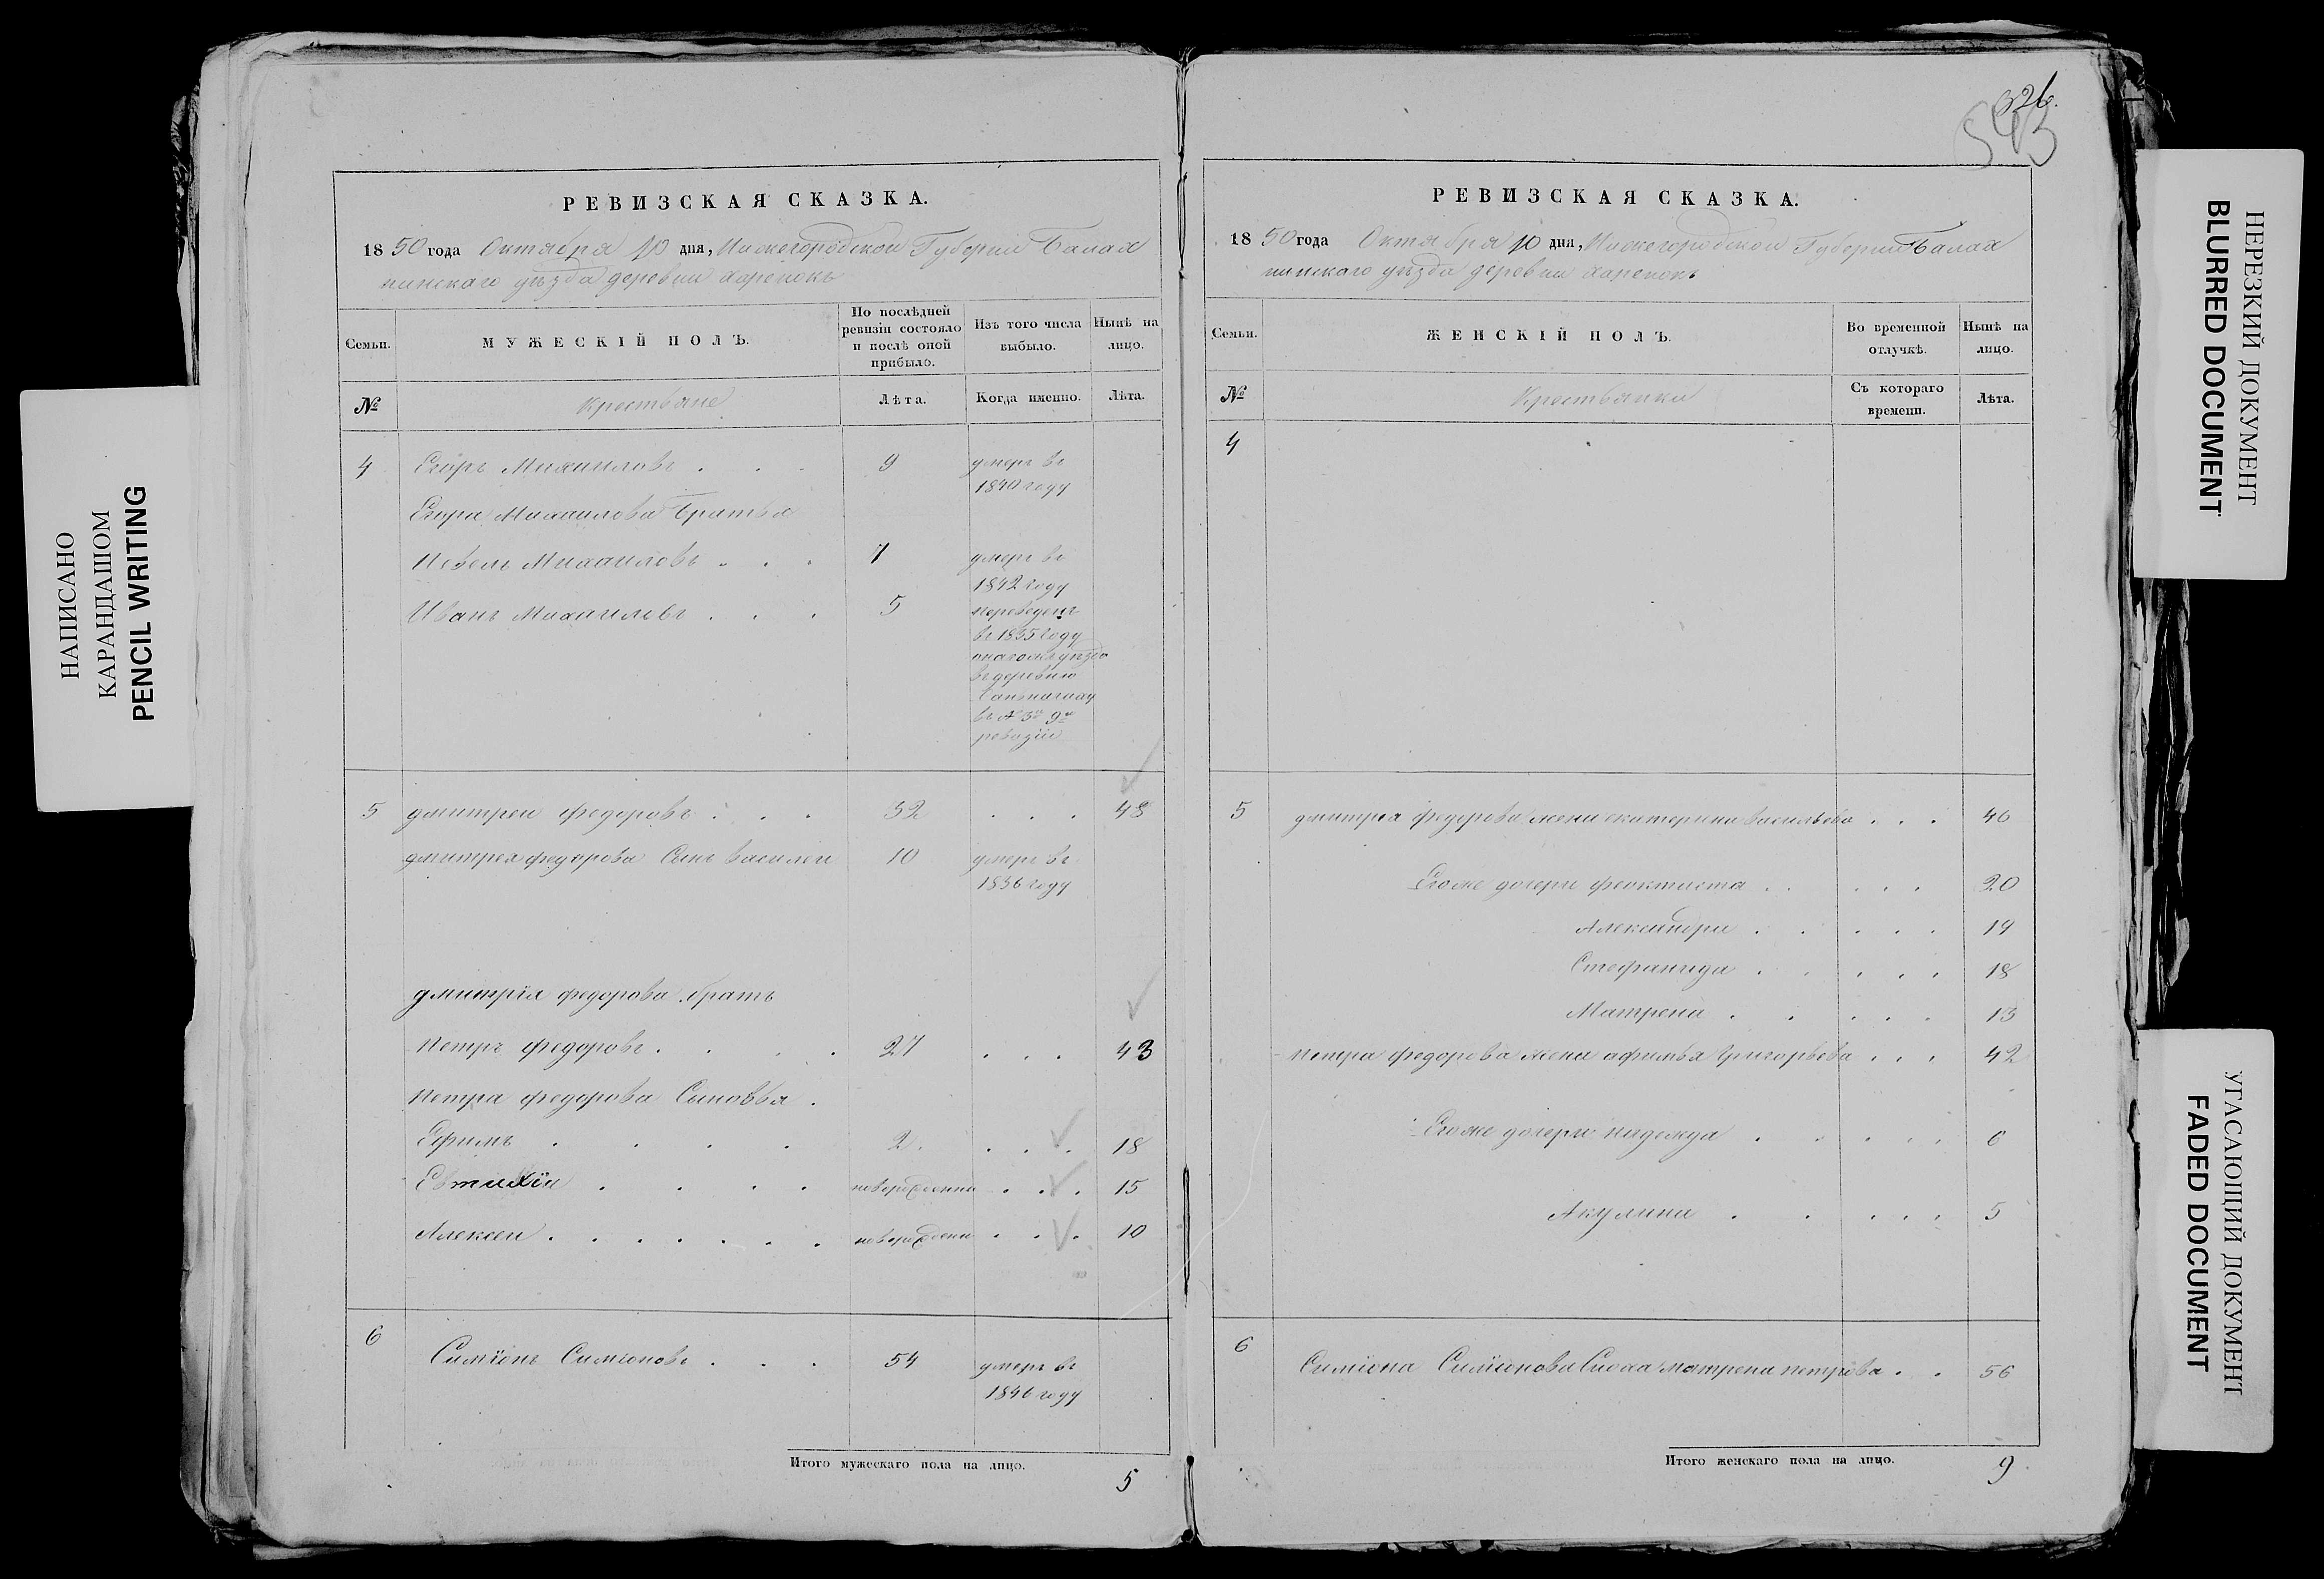 НАПИСАНО
КАРАНДАШОМ
PENCIL WRITING
РЕВИЗСКАЯ СКАЗКА.
1850 года Октября 10 дня, Нижегородской Губернии Балах
нинскаго уѣзда деревни
Семьи.
МУЖЕСКІЙ ПОЛЪ.
По послѣдней ревизіи состояло и послѣ оной прибыло.
Изъ того числа выбыло.
Нынѣ на лицо.
№
Крестьяне
Лѣта.
Когда именно.
Лѣта.
4 Егоръ Михаиловъ . . . 9 умеръ въ
1840 году
Егора Михаилова братья
Павелъ Михаиловъ . . . 7 умеръ въ
1842 году
Иванъ Михаиловъ . . . 5 переведенъ
въ 1835 году
онагожъ уѣзда
въ деревню
въ № 3й 9й
ревизіи
5 дмитреи федоровъ . . . 32 . . . 48
дмитрея федорова Сынъ василеи 10 умеръ въ
1836 году
дмитрія федорова братъ
Петръ федоровъ . . . . 27 . . . 43
Петра федорова Сыновья .
Ефимъ . . . . 2 . . . . 18
Евтихіи . . . . новорожденни . . . 15
Алексеи . . . . . . . новорожденн . . . 10
6 Симіонъ Симіоновъ . . . 54 умеръ въ
1846 году
Итого мужескаго пола на лицо.
5
326.
543
РЕВИЗСКАЯ СКАЗКА.
1850 года Октября 10 дня, Нижегородской Губернии Балах
нинскаго уѣзда деревни
Семьи.
ЖЕНСКІЙ ПОЛЪ.
Во временной отлучкѣ.
Нынѣ на лицо.
№
Крестьянки
Съ котораго времени.
Лѣта.
4
5 дмитрея федорова жена екатерина васильева . . . 46
Егоже дочери феоктиста . . . . . 20
Александра . . . . . 19
Стефанида . . . . . 18
Матрена . . . . . 13
Петра федорова жена афимья Григорьева . . . 42
Егоже дочери надежда . . . . . 6
Акулина . . . . . 5
6 Симіона Симіонова Сноха матрена петрова . . 56
Итого женскаго пола на лицо.
9
НЕРЕЗКИЙ ДОКУМЕНТ
BLURRED DOCUMENT
УГАСАЮЩИЙ ДОКУМЕНТ
FADED DOCUMENT